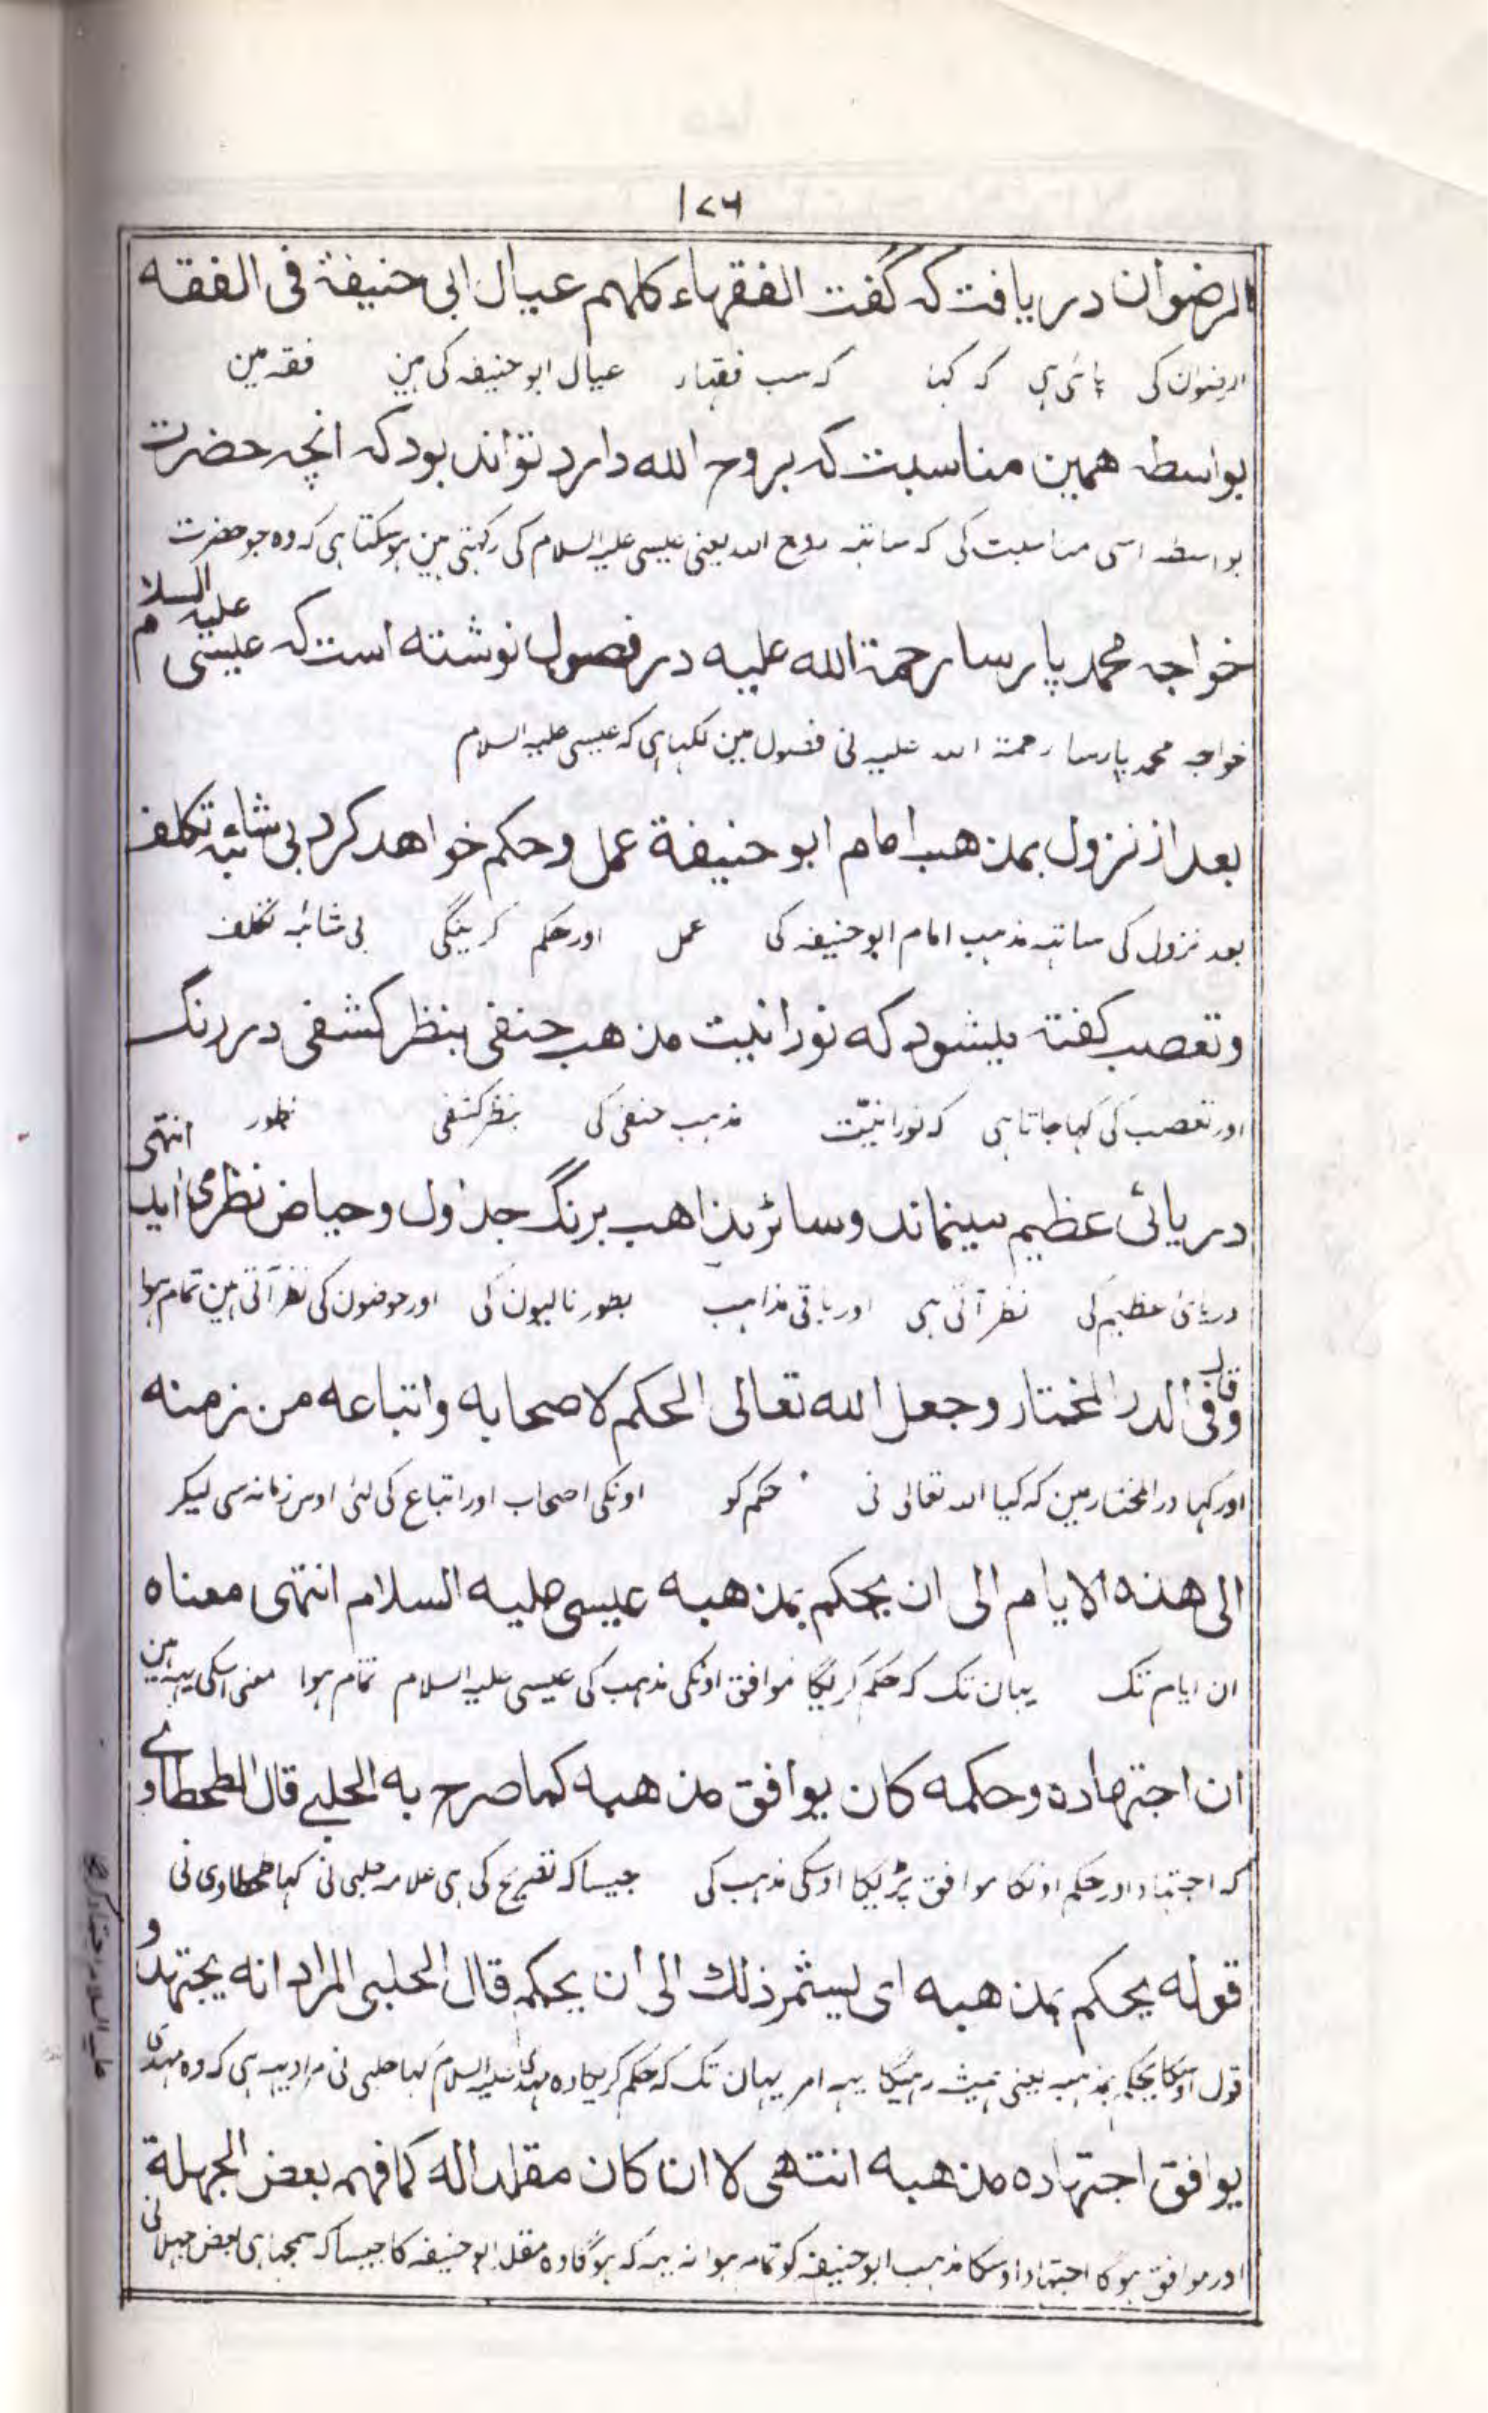 ۱۷۶
الرضوان دریافت کہ گفت الفقہاء کلہم عیال ابی حنیفۃ فی الفقہ
الرضوان کی پائی ہی کہ کہا کہ سب فقہاء عیال ابو حنیفہ کی ہین فقہ مین
بواسطہ ہمین مناسبت کہ بروح اللہ دارد تواند بود کہ انچہ حضرت
بواسطہ اسی مناسبت کی کہ ساتہہ روح اللہ یعنی عیسی علیہ السلام کی رکہتی ہین ہوسکتا ہی کہ وہ جو حضرت
خواجہ محمد پارسا رحمۃ اللہ علیہ در فصول نوشتہ است کہ عیسی علیہ السلام
خواجہ محمد پارسا رحمۃ اللہ علیہ نی فصول مین لکہا ہی کہ عیسی علیہ السلام
بعد از نزول بمذہب امام ابو حنیفۃ عمل و حکم خواہد کرد بی شائبہ تکلف
بعد نزول کی ساتہہ مذہب امام ابو حنیفہ کی عمل اور حکم کرینگی بی شائبہ تکلف
و تعصب گفتہ میشود کہ نورانیت مذہب حنفی بنظر کشفی در رنگ
اور تعصب کی کہا جاتا ہی کہ نورانیّت مذہب حنفی کی بنظر کشفی بطور
دریائی عظیم مینماند و سائر مذاہب برنگ جداول و حیاض نظر می اید انتہی
دریای عظیم کی نظر آتی ہی اور باقی مذاہب بطور نالیون کی اور حوضون کی نظر آتی ہین تمام ہوا
وقال فی الدر المختار وجعل اللہ تعالی الحکم لاصحابہ واتباعہ من زمنہ
اور کہا در المختار مین کہ کیا اللہ تعالی نی حکم کو اونکی اصحاب اور اتباع کی لئی اوس زمانہ سی لیکر
الی ہذہ الایام الی ان یحکم بمذہبہ عیسی علیہ السلام انتہی معناہ
ان ایام تک یہان تک کہ حکم کریگا موافق اونکی مذہب کی عیسی علیہ السلام تمام ہوا معنی اسکی یہہ ہین
ان اجتہادہ وحکمہ کان یوافق مذہبہ کما صرح بہ الحلبی قال الطحطاوی
کہ اجتہاد اور حکم اونکا موافق پڑیگا اوسکی مذہب کی جیسا کہ تصریح کی ہی علامہ حلبی نی کہا طحطاوی نی
قولہ یحکم بمذہبہ ای یستمر ذلک الی ان یحکم قال الحلبی المراد انہ یجتہد و
قول اوسکا یحکم بمذہبہ یعنی ہمیشہ رہیگا یہہ امر یہان تک کہ حکم کریگا وہ علیہ السلام کہا حلبی نی مراد یہہ ہی کہ وہ
یوافق اجتہادہ مذہبہ انتہی لا ان کان مقلدا لہ کما فہم بعض الجہلۃ
اور موافق ہوگا اجتہاد اوسکا مذہب ابو حنیفہ کو تمام ہوا نہ یہہ کہ ہوگا وہ مقلد ابو حنیفہ کا جیسا کہ سمجہا ہی بعض جہلا نی
علیہ السلام